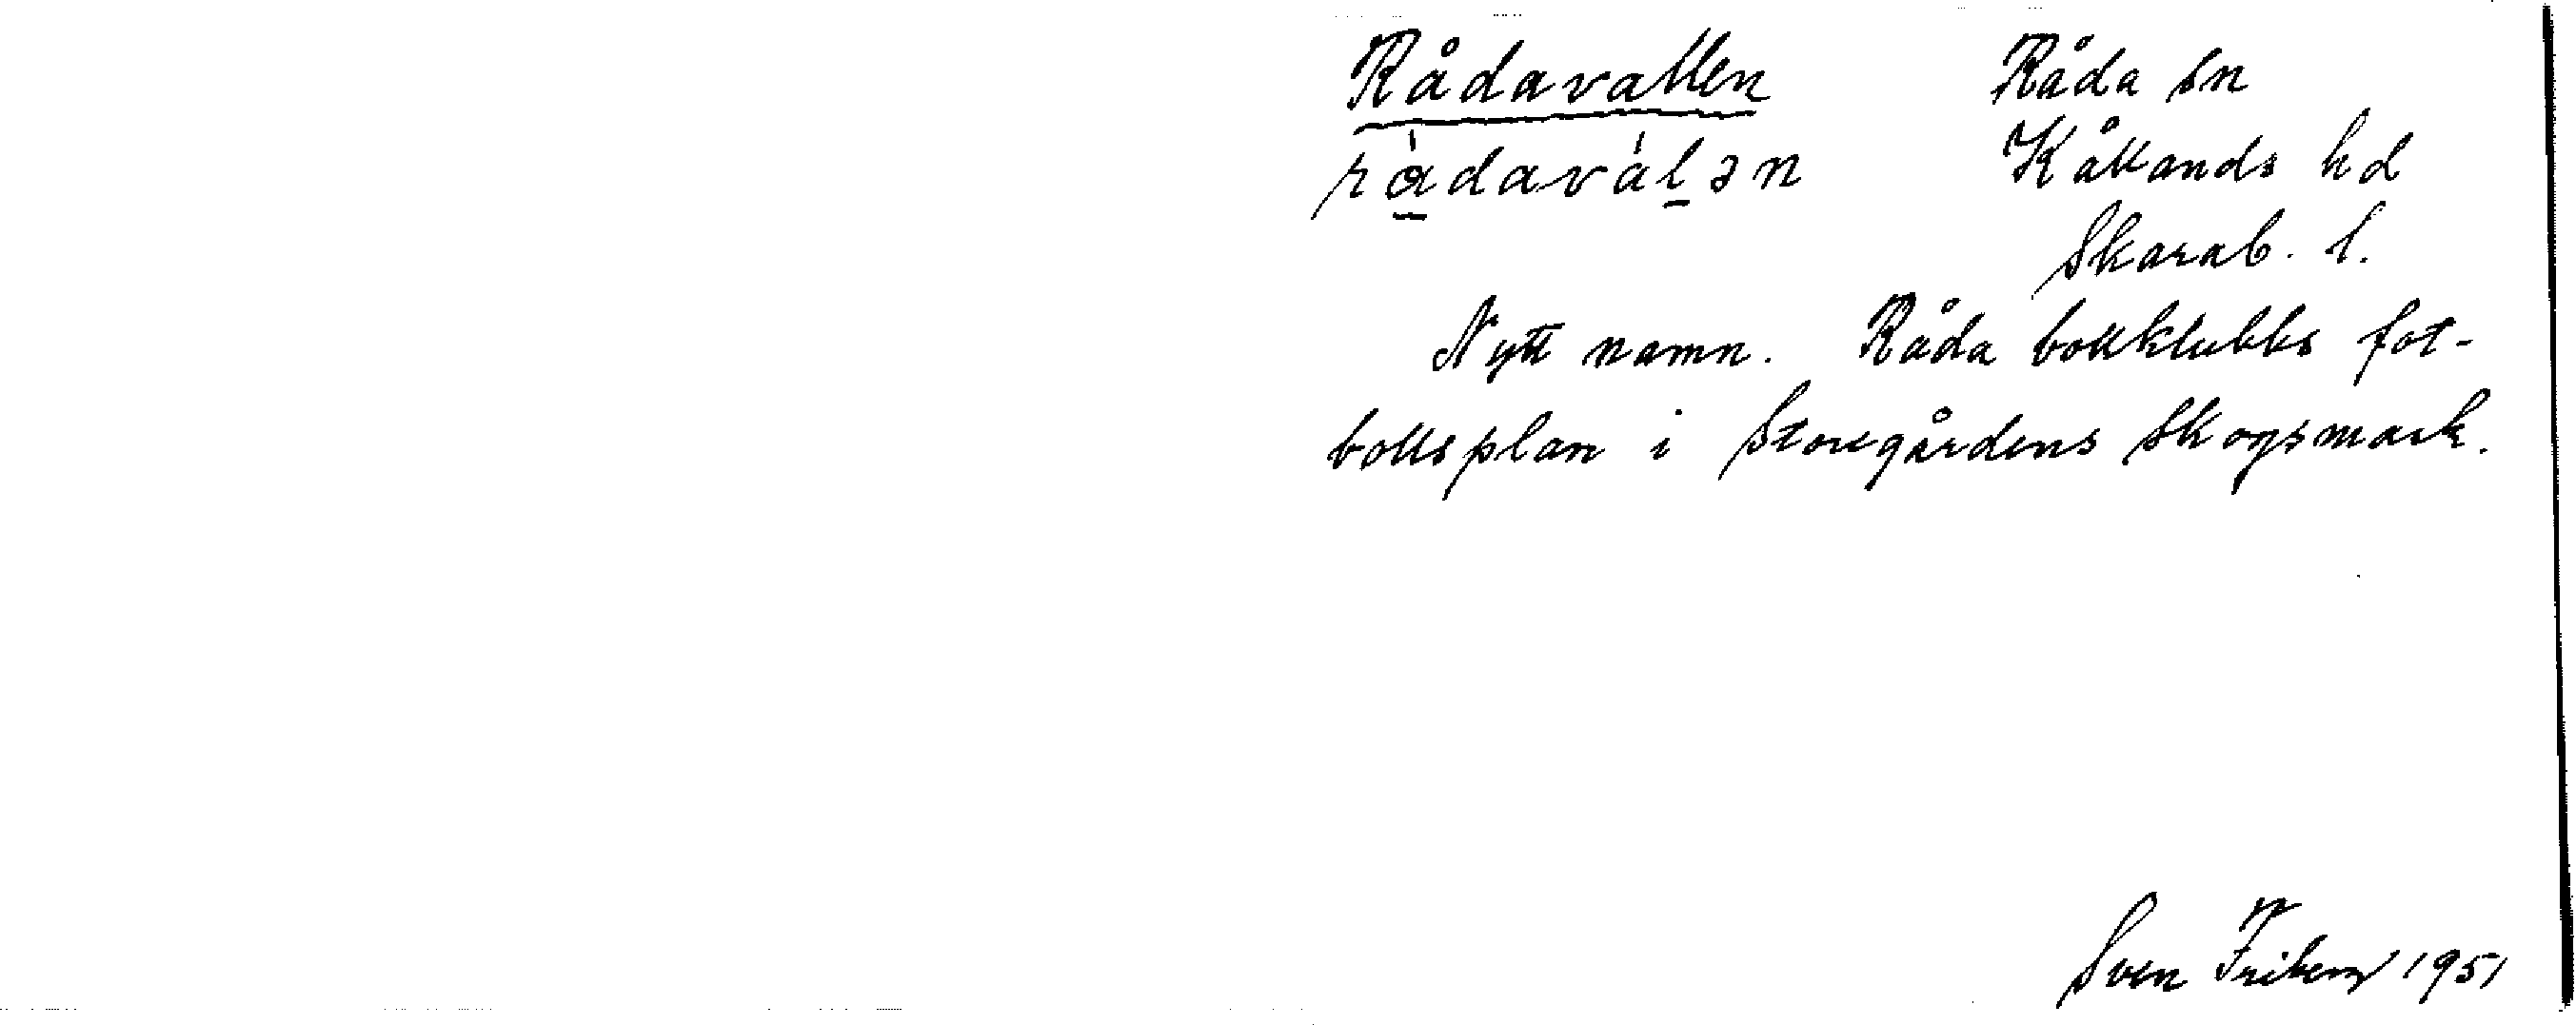 Rådavallen
rå̀daválən
Råda sn
Kållands hd
Skarab. l.
Nytt namn. Råda bollklubbs fot-
bollsplan i Storegårdens skogsmark.
Sven Friberg 1951